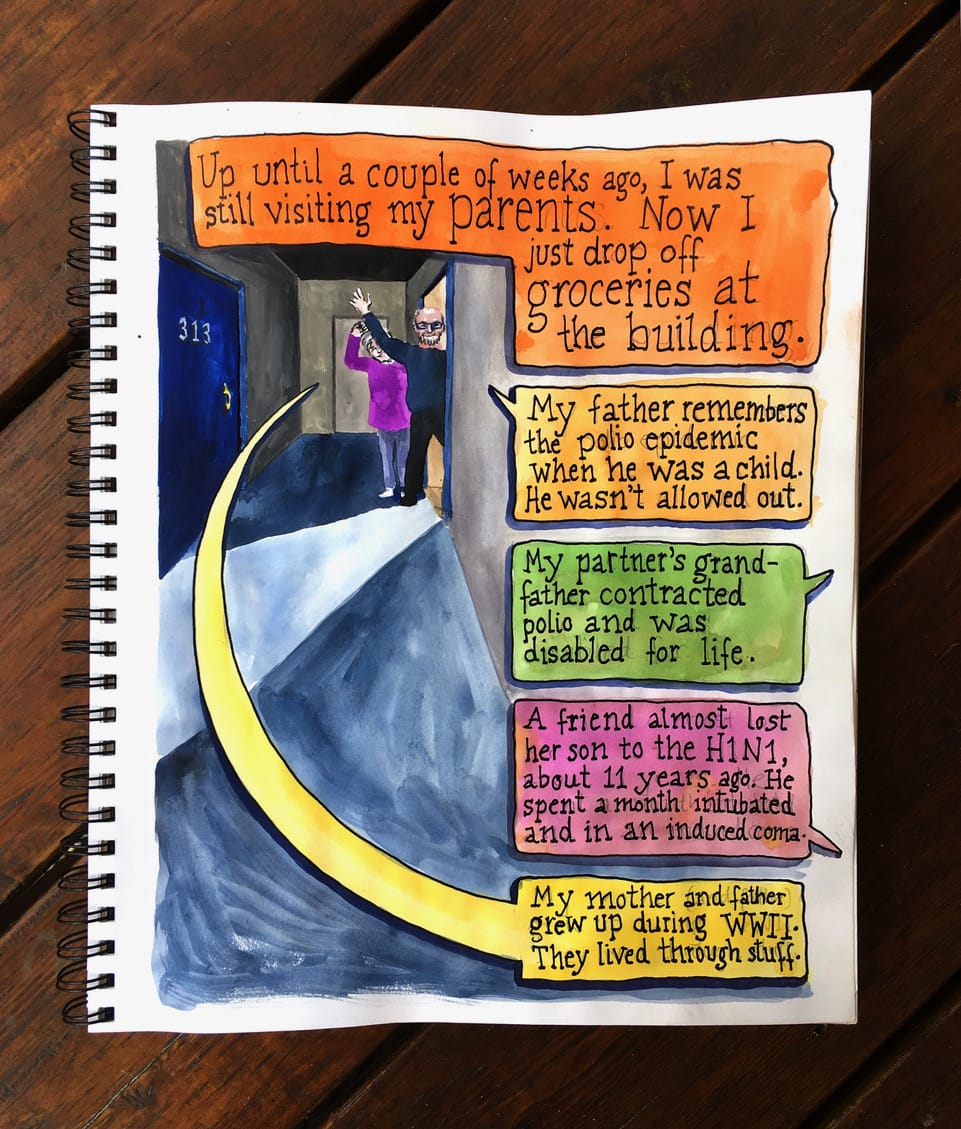 Up until a couple of weeks ago, I was
still visiting my parents. Now I
just drop off
groceries at
the building.
313
My father remembers
the polio epidemic
when he was a child.
He wasn't allowed out.
My partner's grand-
father contracted
polio and was
disabled for life.
A friend almost lost
her son to the H1N1,
about 11 years ago. He
spent a month intubated
and in an induced coma.
My mother and father
grew up during WWII.
They lived through stuff.